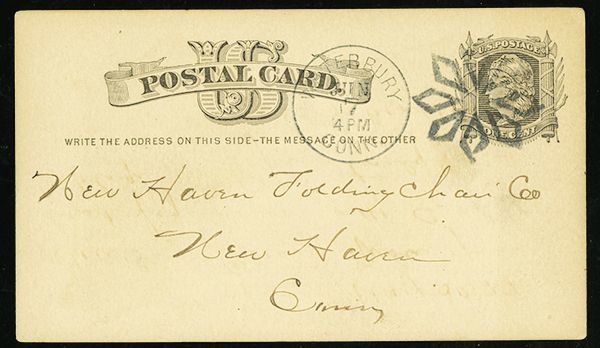 US
POSTAL CARD.
WATERBURY
JUN
17
4 PM
CONN.
U.S. POSTAGE
ONE CENT
WRITE THE ADDRESS ON THIS SIDE–THE MESSAGE ON THE OTHER
New Haven Folding Chair Co
New Haven
Conn